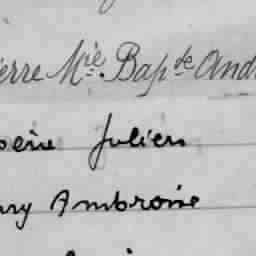 ierre Mie. Bapte And
Julien
ry Ambroise